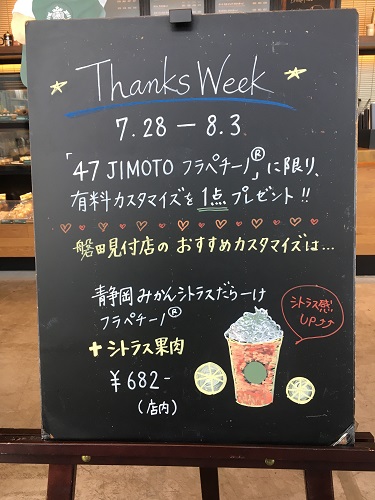 Thanks Week
7.28 – 8.3
「47 JIMOTO フラペチーノ®」に限り、
有料カスタマイズを1点プレゼント!!
磐田見付店のおすすめカスタマイズは…
静岡みかんシトラスだらーけ
フラペチーノ®
+シトラス果肉
¥682-
(店内)
シトラス感
UP↑↑